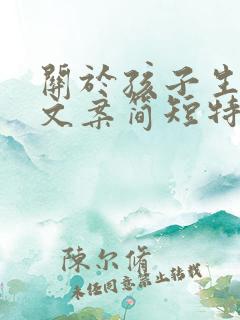 關於孩子生
文案簡短特
陳尔脩
未经同意禁止转载